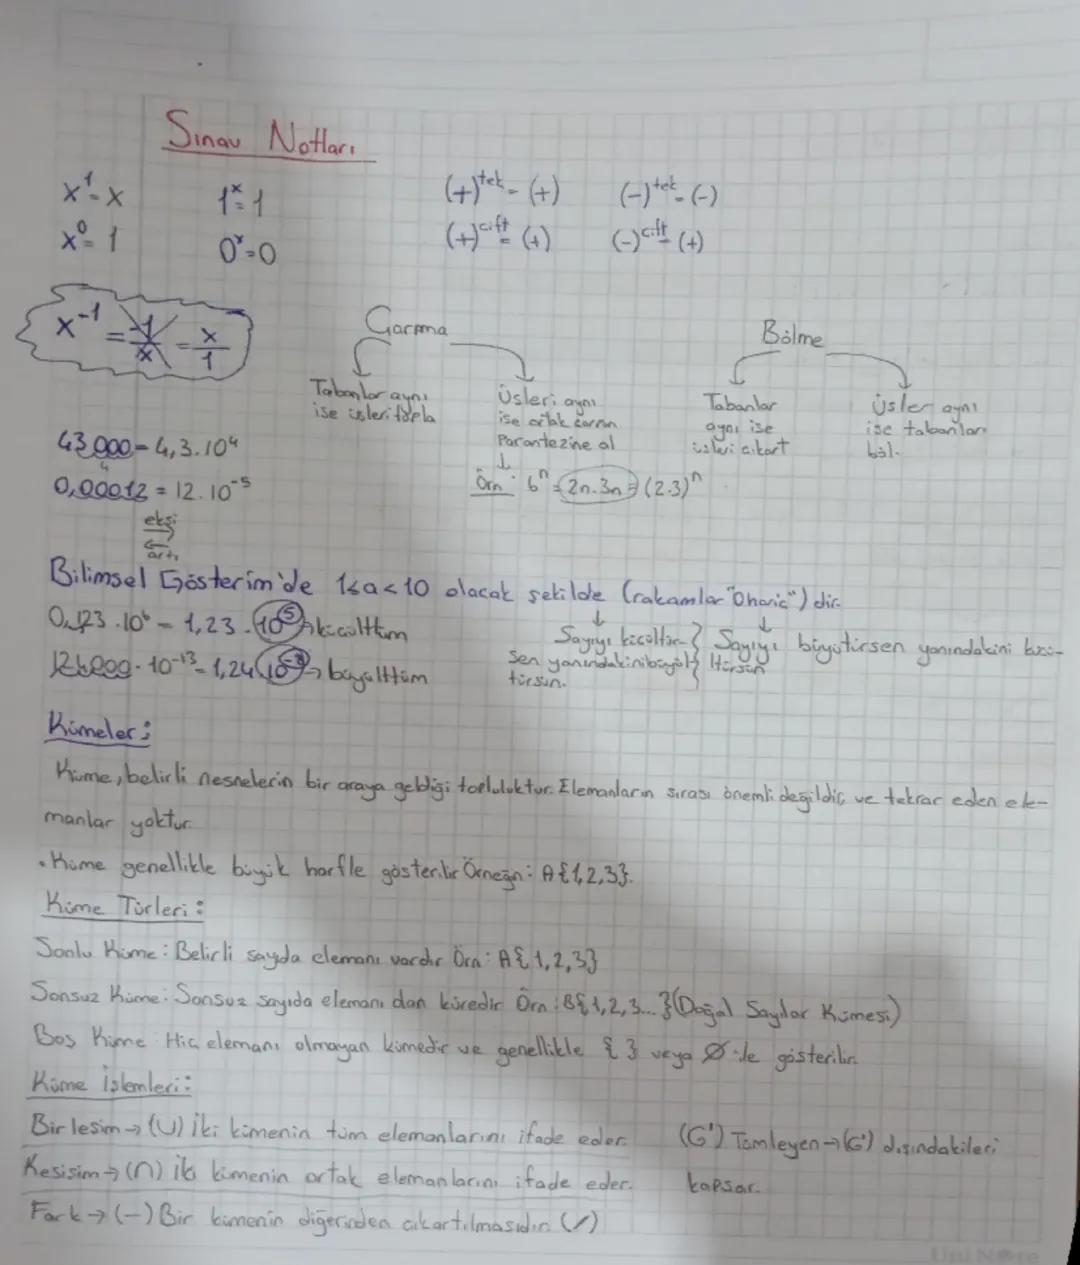 Sınav Notları
x¹=x 1ˣ=1 (+)ᵗᵉᵏ=(+) (-)ᵗᵉᵏ=(-)
x⁰=1 0ˣ=0 (+)ᶜⁱᶠᵗ=(+) (-)ᶜⁱᶠᵗ=(+)
x⁻¹ = -1/x = x/1
Çarpma
Tabanlar aynı
ise üsleri topla
Üsleri aynı
ise ortak çarpan
Parantezine al
↓
Örn: 6ⁿ = 2n.3n = (2.3)ⁿ
Bölme
Tabanlar
aynı ise
üsleri çıkart
Üsler aynı
ise tabanları
böl.
43.000 = 4,3.10⁴
4
0,00012 = 12.10⁻⁵
eksi
→
←
artı
Bilimsel Gösterim'de 1≤a<10 olacak şekilde (rakamlar "0 hariç") dir.
0,123.10⁶ = 1,23.10⁵ → küçülttüm
10⁻¹³ = 1,24.10⁻⁸ → büyülttüm
Sayıyı küçültür-
sen yanındakini büyül
türsün.
Sayıyı büyütürsen yanındakini kü-
ltürsün
Kümeler:
Küme, belirli nesnelerin bir araya geldiği topluluktur. Elemanların sırası önemli değildir, ve tekrar eden ele-
manlar yoktur.
• Küme genellikle büyük harfle gösterilir Örneğin: A{1,2,3}.
Küme Türleri:
Sonlu Küme: Belirli sayıda elemanı vardır Örn: A{1,2,3}
Sonsuz Küme: Sonsuz sayıda elemanı olan kümedir Örn: B{1,2,3...} (Doğal Sayılar Kümesi)
Boş Küme: Hiç elemanı olmayan kümedir ve genellikle { } veya Ø ile gösterilir.
Küme İşlemleri:
Birleşim → (∪) İki kümenin tüm elemanlarını ifade eder.
Kesişim → (∩) iki kümenin ortak elemanlarını ifade eder.
Fark → (-) Bir kümenin diğerinden çıkartılmasıdır. (/)
(G') Tümleyen → (G') dışındakileri
kapsar.